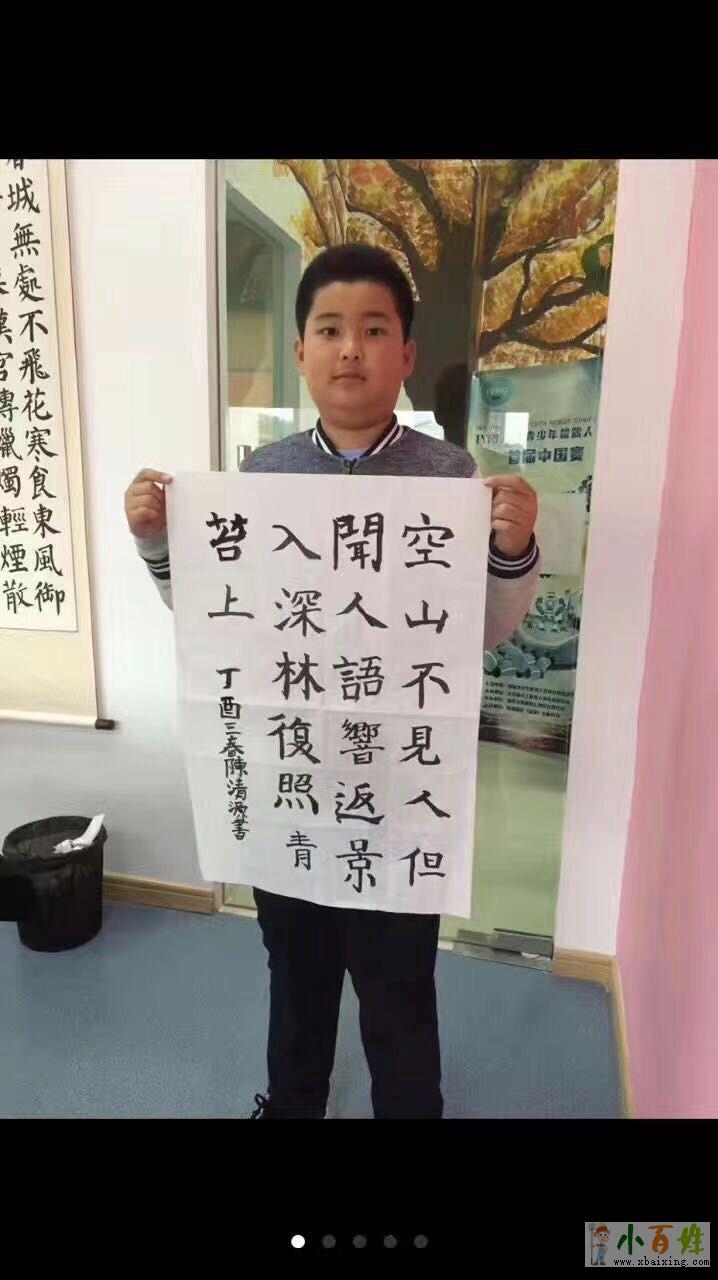 空山不見人但
聞人語響返景
入深林復照青
苔上
丁酉三春陳清源書
春城無處不飛花寒食東風御
漢宮傳蠟燭輕煙散
OUTH ROBOT
青少年机器人
首届中国赛
小百姓
www.xbaixing.com